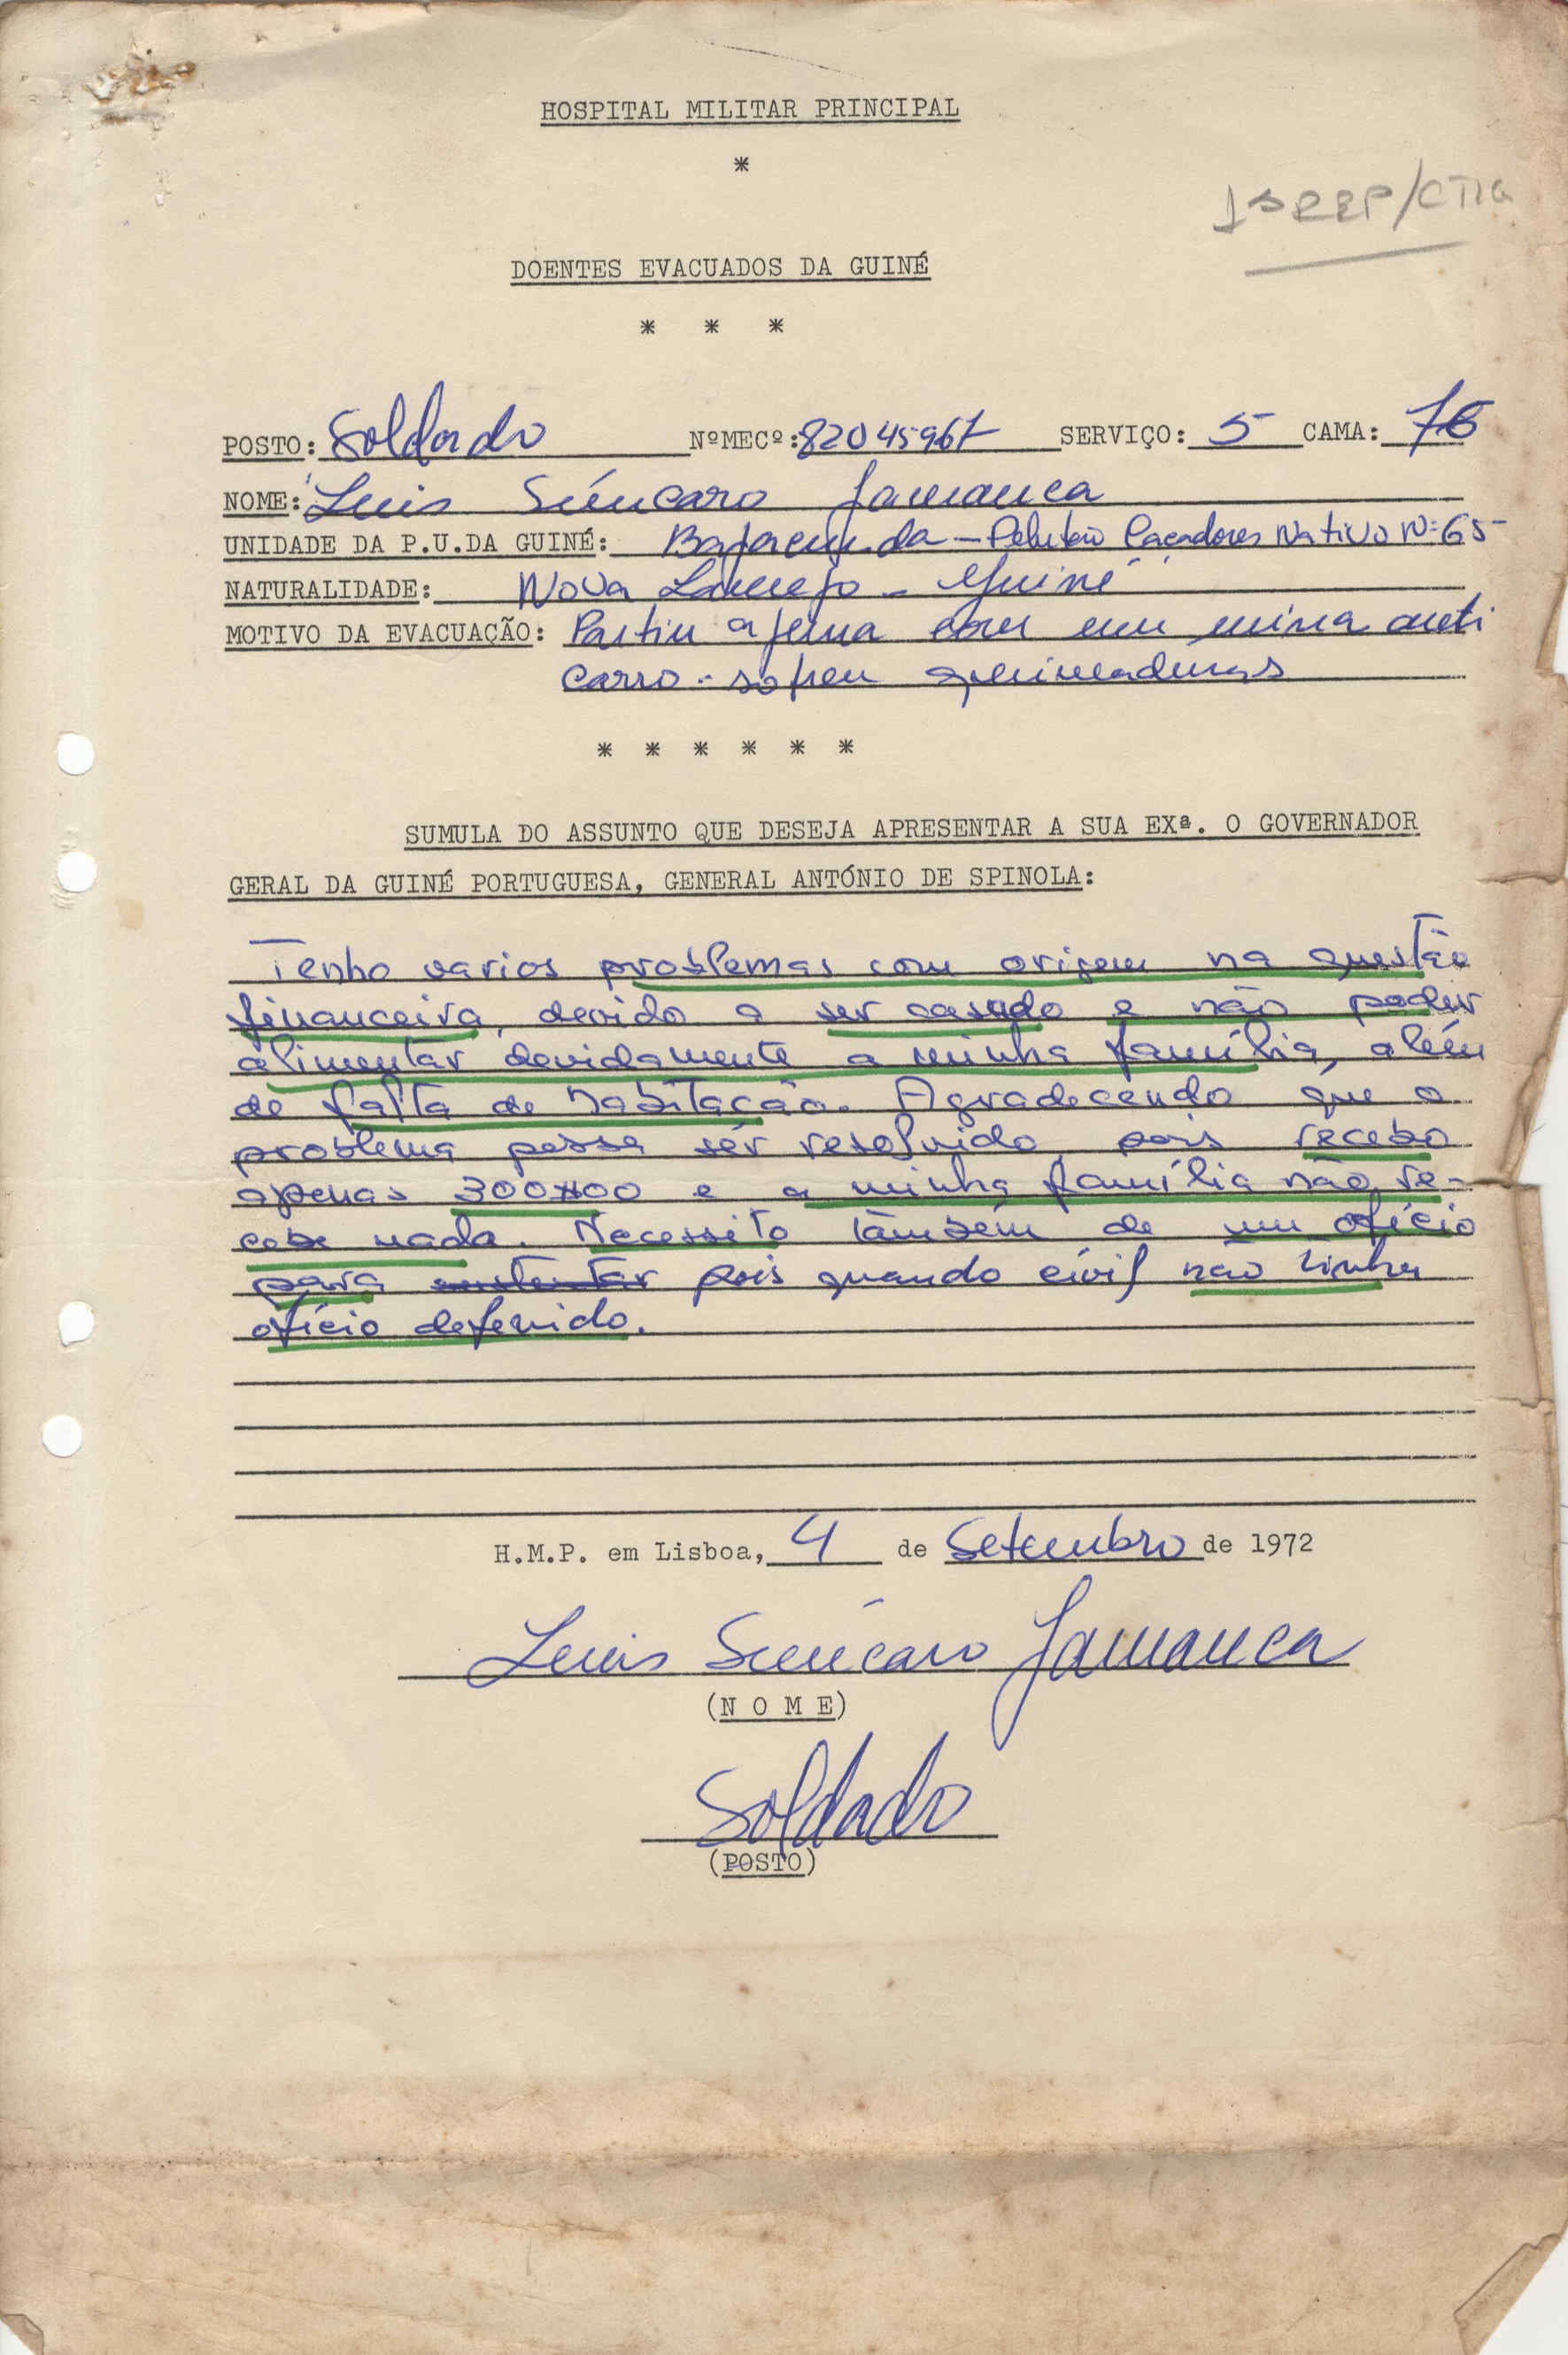 HOSPITAL MILITAR PRINCIPAL
*
1ª REP/CTIG
DOENTES EVACUADOS DA GUINÉ
* * *
POSTO: Soldado NºMECº: 82045967 SERVIÇO: 5 CAMA: 76
NOME: Luis Jamanca
UNIDADE DA P.U.DA GUINÉ: Bajocunda - Pelutão Caçadores Nativo Nº 65
NATURALIDADE: Nova Lamego - Guiné
MOTIVO DA EVACUAÇÃO: Partiu a perna com um mina anti
carro - sofreu queimaduras
* * * * * *
SUMULA DO ASSUNTO QUE DESEJA APRESENTAR A SUA EXª. O GOVERNADOR
GERAL DA GUINÉ PORTUGUESA, GENERAL ANTÓNIO DE SPINOLA:
Tenho varios problemas com origem na questão
financeira, devido a ser casado e não poder
alimentar devidamente a minha família, além
de falta de habitação. Agradecendo que o
problema possa sêr resolvido, pois recebo
apenas 300$00 e a minha família não re-
cebe nada. Necessito também de um ofício
para sustentar pois quando civil não tinha
ofício defenido.
H.M.P. em Lisboa, 4 de Setembro de 1972
Luis Jamanca
(N O M E)
Soldado
(POSTO)